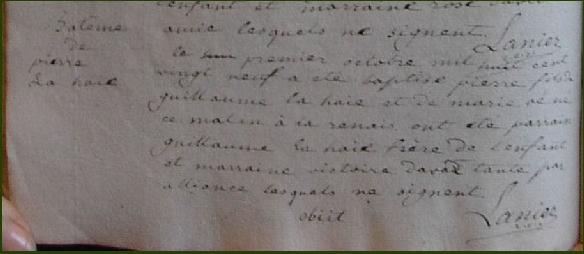 enfant et marraine rose
Batême
de
pierre
La haie
amie lesquels ne signent. Lanier
le premier octobre mil huit cent
vingt neuf a été baptisé pierre fils de
guillaume la haie et de marie né
ce matin à la renais ont été parrain
guillaume la haie frère de l'enfant
et marraine victoire tante par
alliance lesquels ne signent
obiit Lanier